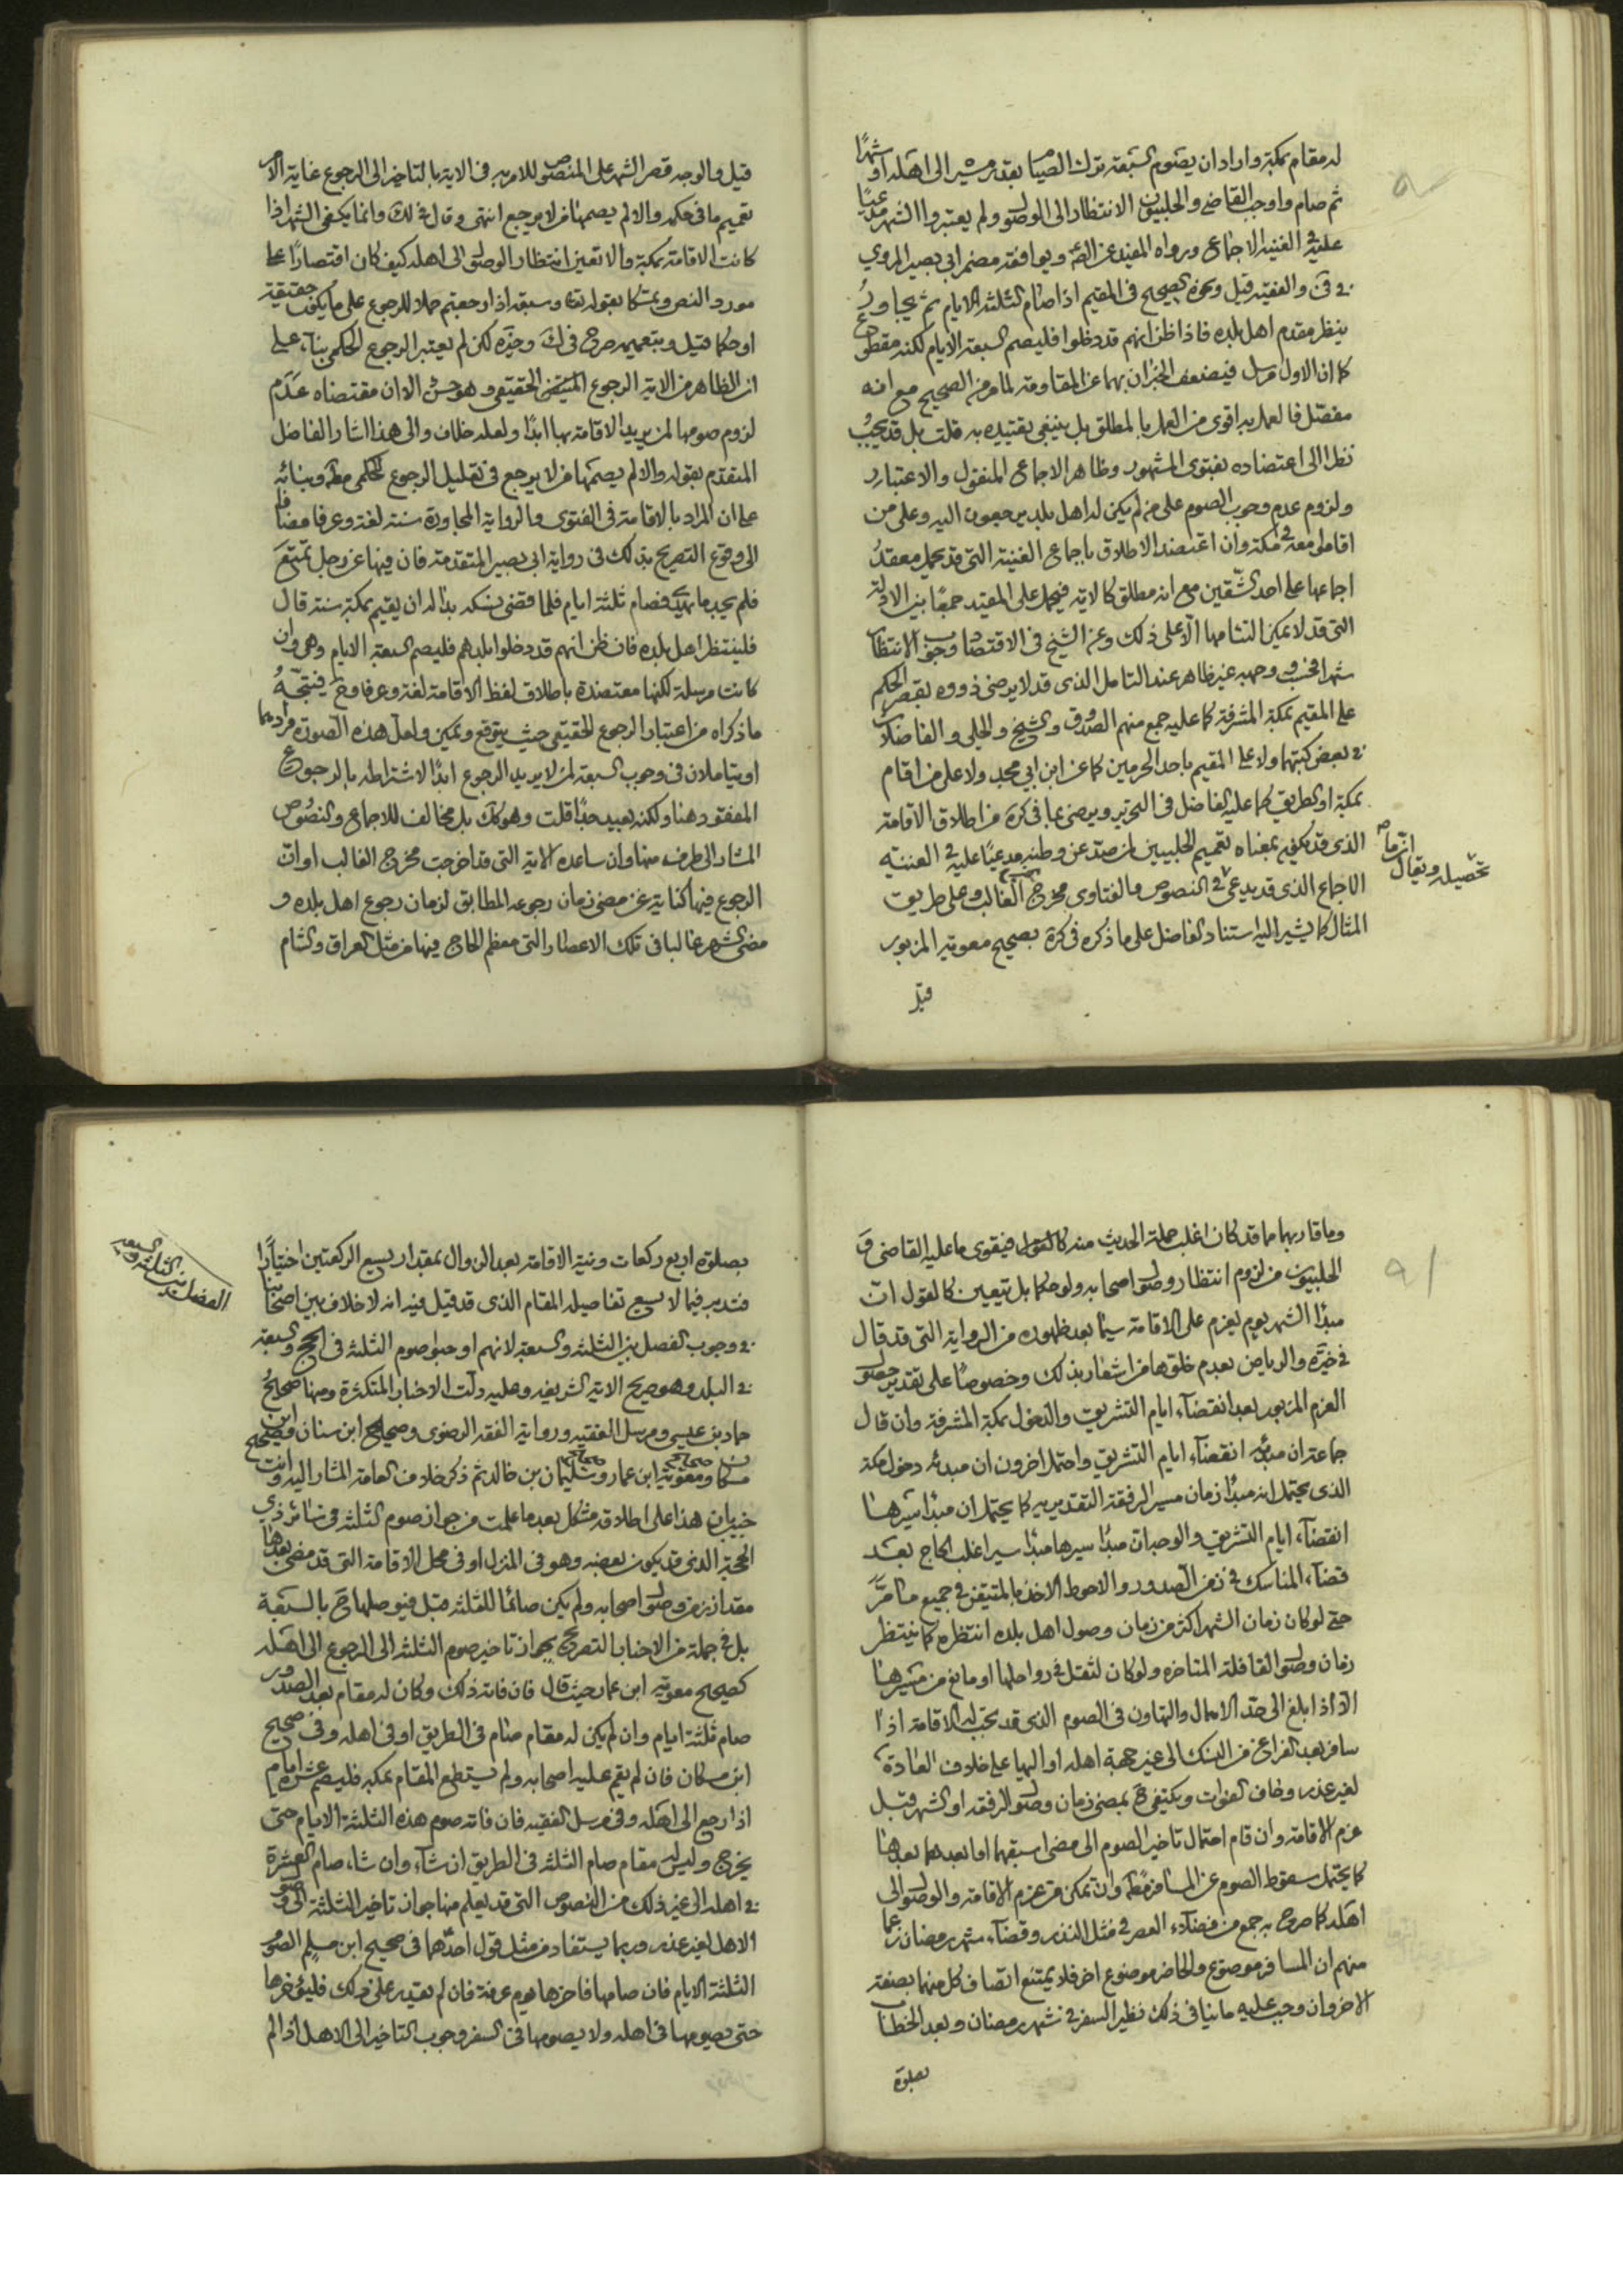 له مقام بمكة واراد ان يصوم السبعة ترك الصيام بقدر مسيره الى اهله او شهرًا
ثم صام واوجب القاضي والحلبيون الانتظار الى الوصول ولم يعتبروا الشهر مدعيًا
عليه في الغنية الاجماع ورواه المفيد عن الصم ويوافقه مضمر ابي بصير المروي
في والفقيه قيل ونحوه الصحيح في المقيم اذا صام الثلثة الايام ثم يجاور
ينظر مقدم اهل بلده فاذا ظن انهم قد دخلوا فليصم السبعة الايام لكنه مقطوع
كما ان الاول مرسل فيضعف الخبران بهما عن المقاومة لما مر من الصحيح مع انه
مفصل فالعمل به اقوى من العمل بالمطلق بل ينبغي تقييده به قلت بل قد يجب
نظرا الى اعتضاده بفتوى المشهور وظاهر الاجماع المنقول والاعتبار
ولزوم عدم وجوب الصوم على من لم يكن له اهل بلد يرجعون اليه وعلى من
اقاموا معه في مكة وان اعتضد الاطلاق باجماع الغنية التي قد يحمل معقد
اجماعها على احد الشقين مع انه مطلق كالاية فيحمل على المقيد جمعًا بين الادلة
التي قد لا يمكن التئامها الا على ذلك وعن الشيخ في الاقتصاد وجوب الانتظار
شهرا فحسب ووجهه غير ظاهر عند التامل الذي قد لا يرضى ذووه بقصر الحكم
على المقيم بمكة المشرفة كما عليه جمع منهم الصدوق والشيخ والحلي والفاضلان
في بعض كتبهما ولا على المقيم باحد الحرمين كما عن ابن ابي مجد ولا على من اقام
بمكة او الطريق كما عليه الفاضل في التحرير ويرضى بما في كرة من اطلاق الاقامة
الذي قد يكون بمعناه تعميم الحلبيين لمن صد عن وطنه مدعيًا عليه في الغنية
الاجماع الذي قد يدعى في النصوص والفتاوى مخرج الغالب وعلى طريق
المثال كما يشير اليه استناد الفاضل على ما ذكره في كرة بصحيح معوية المزبور
تحصيله ويقال
قيل
قيل والوجه قصر الشهر على المنصوص للامر به في الاية بالتاخير الى الرجوع غاية الامر
تعميم ما في حكمه والا لم يصمها من لا يرجع انتهى وقال في لك وانما يكفي الشهر اذا
كانت الاقامة بمكة والا تعين انتظار الوصول الى اهله كيف كان اقتصارًا على
مورد النص وتمسكا بقوله تعا وسبعة اذا رجعتم حملا للرجوع على ما يكون حقيقة
او حكما قيل وبتعميمه صرح في ك وخيره لكن لم يعتبر الرجوع الحكمي بناء على
ان الظاهر من الاية الرجوع الحقيقي وهو حسن الا ان مقتضاه عدم
لزوم صومها لمن يريد الاقامة بها ابدًا ولعله خلاف والى هذا اشار الفاضل
المتقدم بقوله والا لم يصمها من لا يرجع في تعليل الرجوع الحكمي مطه وبنائه
على ان المراد بالاقامة في الفتوى والرواية المجاورة سنة لغة وعرفا مضافا
الى وقوع التصريح بذلك في رواية ابي بصير المتقدمة فان فيها عن رجل تمتع
فلم يجد ما يهدي فصام ثلثة ايام فلما قضى نسكه بدا له ان يقيم بمكة سنة قال
فلينتظر اهل بلده فان ظن انهم قد دخلوا بلدهم فليصم السبعة الايام وهي وان
كانت مرسلة لكنها معتضدة باطلاق لفظ الاقامة لغة وعرفا وح فيتجه
ما ذكراه من اعتبار الرجوع الحقيقي حيث يتوقع ويمكن ولعل هذه الصورة مرادهما
او يتاملان في وجوب السبعة لمن لا يريد الرجوع ابدًا لاشتراطه بالرجوع
المفقود هنا ولكنه بعيد جدًا قلت وهو كك بل مخالف للاجماع والنصوص
المشار الى طرف منها وان ساعده الاية التي قد اخرجت مخرج الغالب او ان
الرجوع فيها كناية عن مضي زمان رجوعه المطابق لزمان رجوع اهل بلده و
مضي الشهر غالبا في تلك الاعصار التي معظم الحاج فيها من مثل العراق والشام
وما قاربهما مما قد كان اغلب حملة الحديث منه كالقول فيقوى ما عليه القاضي و
الحلبيون من لزوم انتظار وصول اصحابه ولو حكما بل يتعين كالقول ان
مبدا الشهر يوم يعزم على الاقامة سيما بعد ظهوره من الرواية التي قد قال
في خيره والرياض بعدم خلوها من اشعار بذلك وخصوصًا على تقدير حصول
العزم المزبور بعد انقضاء ايام التشريق والدخول بمكة المشرفة وان قال
جماعة ان مبدئه انقضاء ايام التشريق واحتمل اخرون ان مبدئه دخول مكة
الذي يحتمل انه مبدأ زمان مسير الرفقة التقديرية كما يحتمل ان مبدا سيرها
انقضاء ايام التشريق والوجدان مبدا سيرها مبدا سير اغلب الحاج بعد
قضاء المناسك في زمن الصدور والاحوط الاخذ بالمتيقن في جميع ما مر
حتى لو كان زمان الشهر اكثر من زمان وصول اهل بلده انتظره كما ينتظر
زمان وصول القافلة المتاخرة ولو كان لثقل في رواحلها او مانع من مسيرها
الا اذا بلغ الى حد الاهمال والتهاون في الصوم الذي قد يجب له الاقامة اذا
سافر بعد الفراغ من النسك الى غير جهة اهله او اليها على خلاف العادة
لغير عذر وخاف الفوات ويكتفى ح بمضي زمان وصول الرفقة او الشهر قبل
عزم الاقامة وان قام احتمال تاخير الصوم الى مضي اسبقهما او ابعدهما بعدها
كما يحتمل سقوط الصوم عن المسافر مطه وان تمكن من عزم الاقامة والوصول الى
اهله كما صرح به جمع من فضلاء العصر في مثل النذر وقضاء شهر رمضان زعما
منهم ان المسافر موضوع والحاضر موضوع اخر فلا يمتنع اتصاف كل منهما بصفة
الاخر وان وجب عليه ما ينافي ذلك نظير السفر في شهر رمضان وبعد الخطاب
بصلوة
بصلوة اربع ركعات ونية الاقامة بعد الزوال بمقدار يسع الركعتين اختيارا
فتدبر فيما لا يسع تفاصيله المقام الذي قد قيل فيه انه لا خلاف بين اصحابنا
في وجوب الفصل بين الثلثة والسبعة لانهم اوجبوا صوم الثلثة في الحج والسبعة
في البلد وهو صريح الاية الشريفة وعليه دلت الاخبار المتكثرة ومنها صحاح
حماد بن عيسى ومرسل الفقيه ورواية الفقه الرضوي وصحاح ابن سنان وصحيح ابن
مسكان ومعوية ابن عمار وسليمان بن خالد ثم ذكر خلاف العامة المشار اليه وانت
خبير بان هذا على اطلاقه مشكل بعد ما علمت من جواز صوم الثلثة في سائر ذي
الحجة الذي قد يكون بعضه وهو في المنزل او في محل الاقامة التي قد مضى بعدها
مقدار زمن وصول اصحابه ولم يكن صائما للثلثة قبل فيوصلها ح بالسبعة
بل في جملة من الاخبار التصريح بجواز تاخير صوم الثلثة الى الرجوع الى اهله
كصحيح معوية ابن عمار حيث قال فان فاته ذلك وكان له مقام بعد الصدر
صام ثلثة ايام وان لم يكن له مقام صام في الطريق او في اهله وفي صحيح
ابن مسكان فان لم يقم عليه اصحابه ولم يستطع المقام بمكة فليصم عشرة ايام
اذا رجع الى اهله وفي مرسل الفقيه فان فاته صوم هذه الثلثة الايام حتى
يخرج وليس له مقام صام الثلثة في الطريق ان شاء وان شاء صام العشرة
في اهله الى غير ذلك من النصوص التي قد يعلم منها جواز تاخير الثلثة الى وصول
الاهل لغير عذر وربما يستفاد من مثل قول احدهما في صحيح ابن مسلم الصوم
الثلثة الايام فان صامها فاخرها يوم عرفة فان لم يقدر على ذلك فليؤخرها
حتى يصومها في اهله ولا يصومها في السفر وجوب التاخير الى الاهل اذا لم